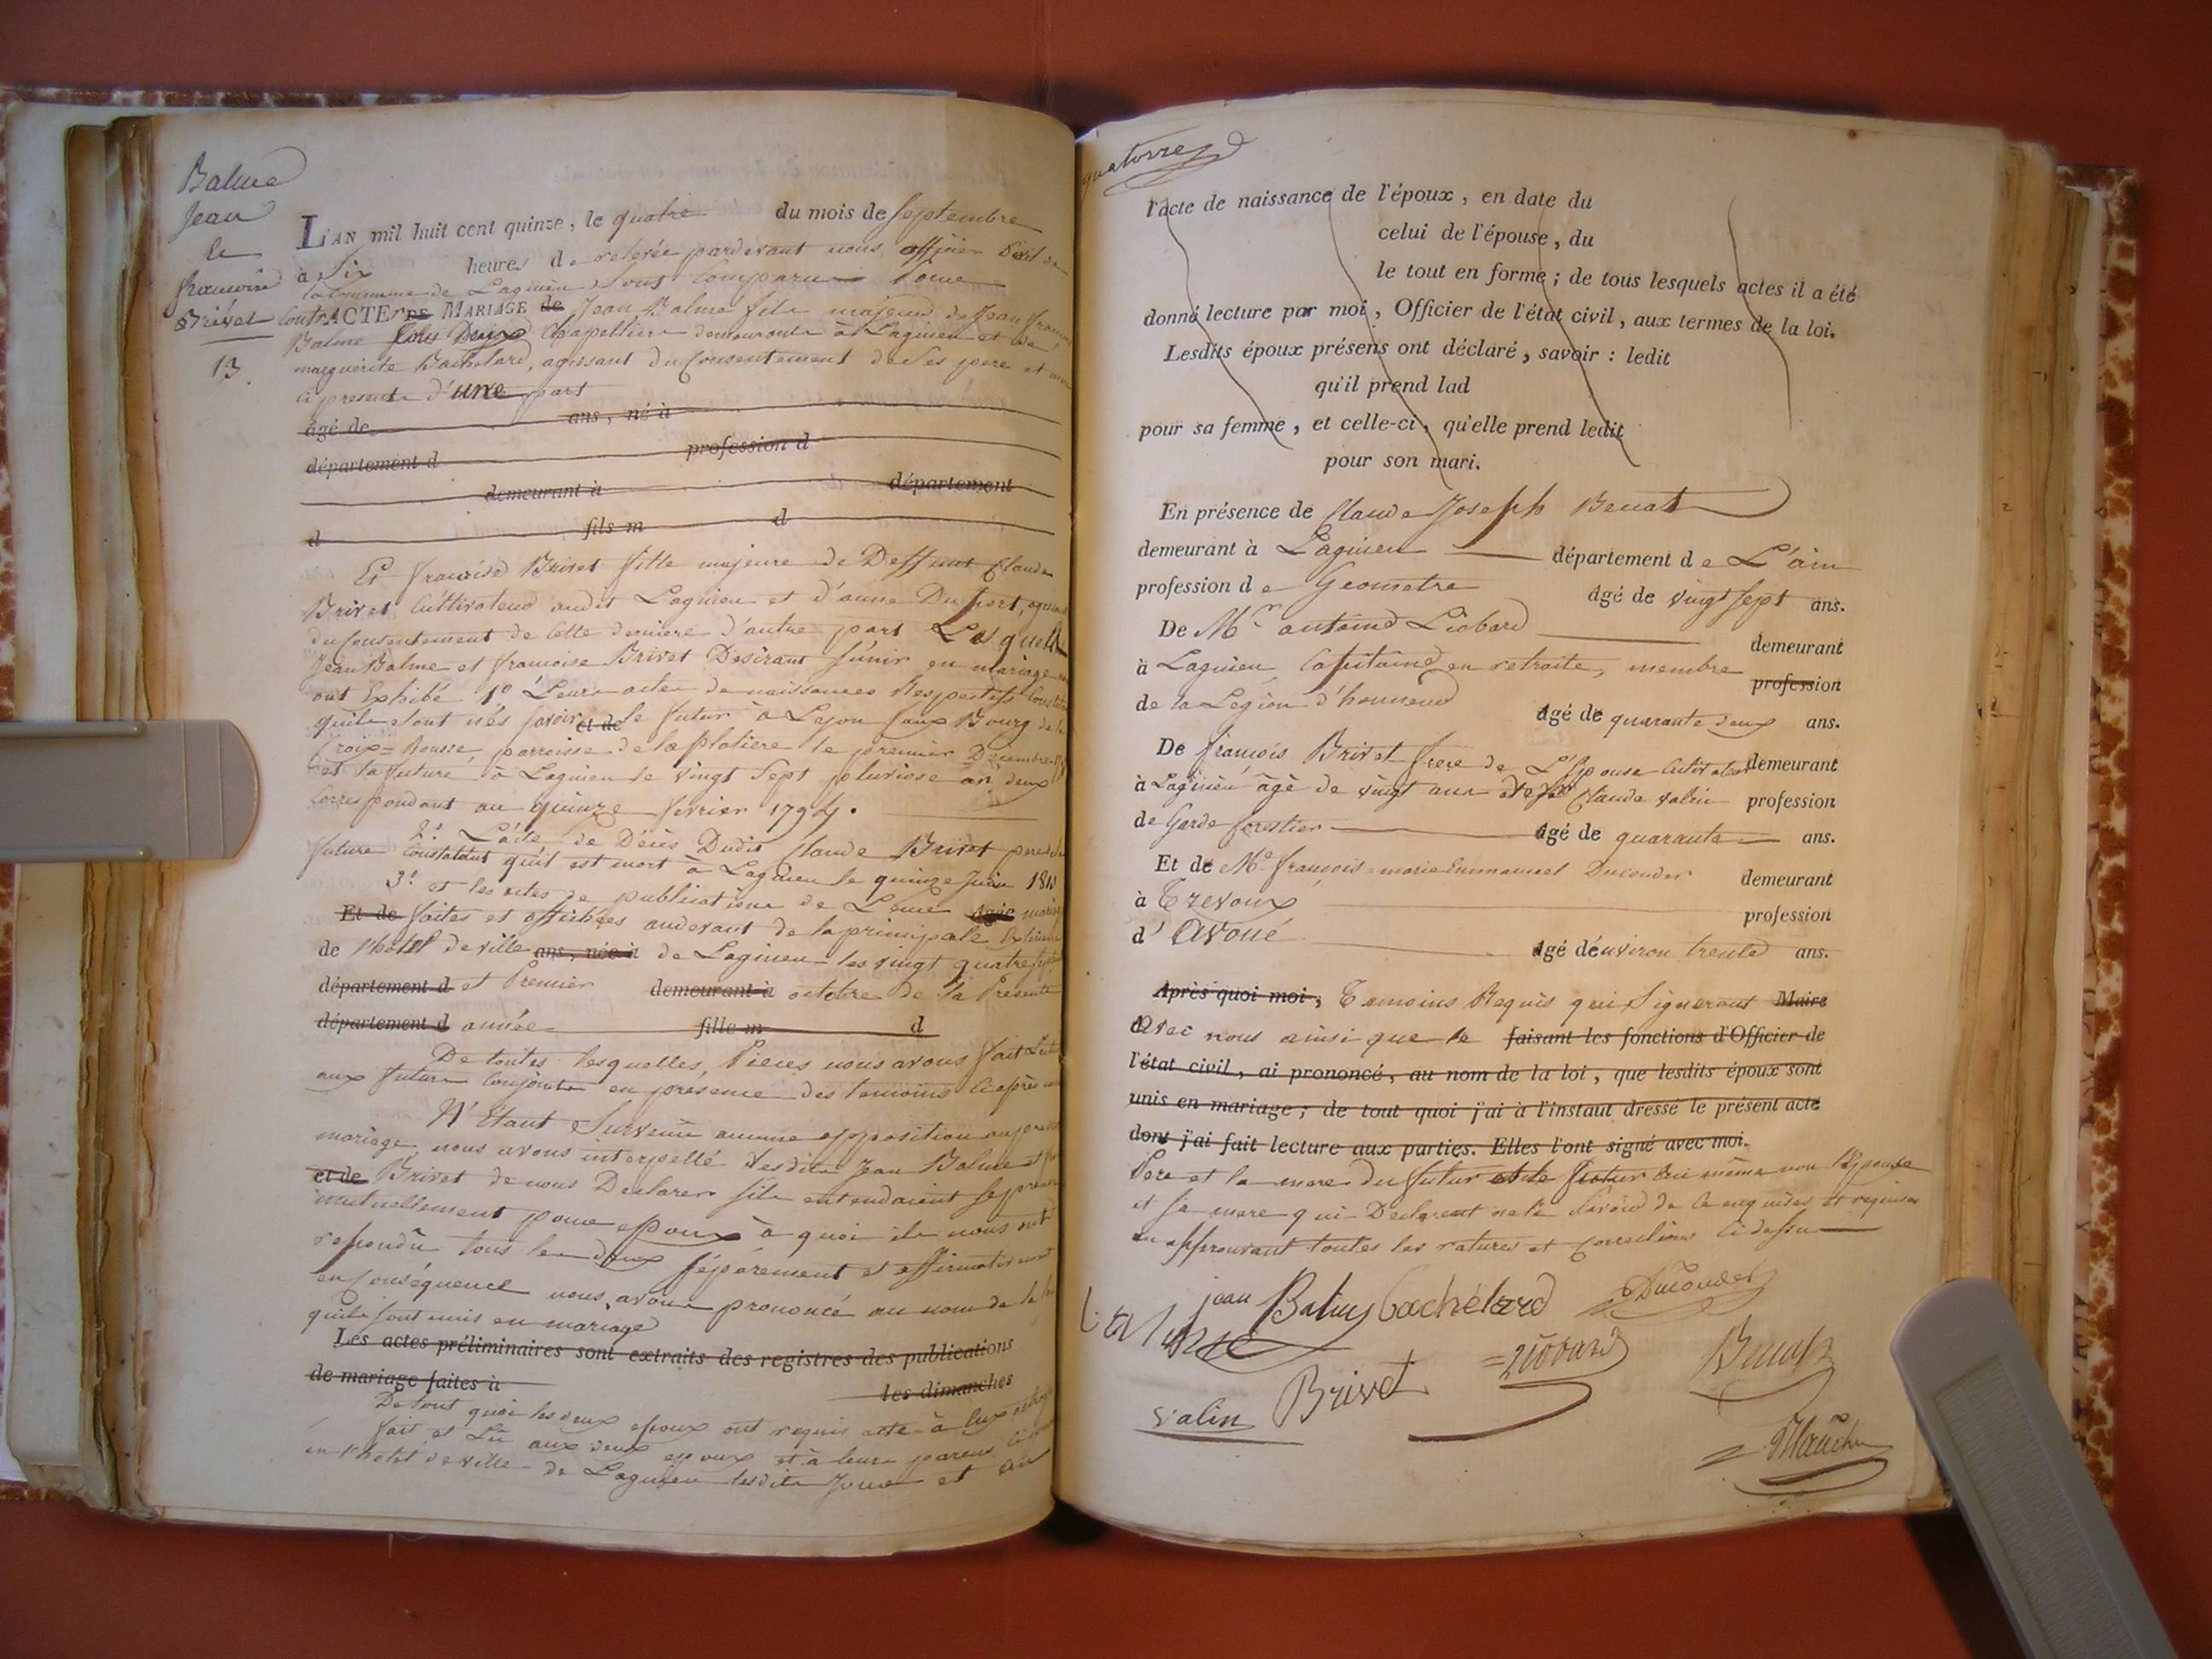 Balme
Jean
&
francoise
Brivet
13
L'AN mil huit cent quinze, le quatre du mois de septembre
à Six heures de relevée pardevant nous officier Civil de
la Commune de Lagnieu sont Comparus Pour
Contracter ACTE DE MARIAGE de Jean Balme fils majeur de Jean francois
Balme Chapellier demeurants à Lagnieu et de
marguerite Bachelard, agissant du Consentement de ses pere et mere
ci presents d'une part
âgé de ans, né à
département d profession d
demeurant à département
d fils m d
Et francoise Brivet fille majeure de Deffunt Claude
Brivet Cultivateur audit Lagnieu et d'anne Duport,
du Consentement de Cette derniere d'autre part Lesquels
Jean Balme et francoise Brivet Desirant s'unir en mariage
ont Exhibé 1º Leurs actes de naissances Respectifs
quils sont nés savoir et de le futur à Lyon faux Bourg de la
Croix=Rousse parroisse de la platiere le premier Decembre
et la future à Lagnieu le vingt Sept pluviose an deux
Correspondant au quinze fevrier 1794.
2º L'acte de Décès Dudit Claude Brivet pere de
future Constatant qu'il est mort à Lagnieu le quinze Juin
3º et les actes de publications de
Et de faites et affichées audevant de la principale
de l'hôtel de ville ans, née à de Lagnieu les vingt quatre
département d et Premier demeurant à octobre de la Présente
département d année fille m d
De toutes lesquelles Pieces nous avons fait
aux futurs Conjoints en presence des temoins Ciaprès
N'Etant Survenu aucune opposition
mariage nous avons interpellé lesdits Jean Balme et
et de Brivet de nous Declarer sils entendaient se prendre
mutuellement pour epoux à quoi ils nous ont
repondu tous les deux séparément et affirmativement
en Conséquence nous avons prononcé au nom de la loi
quils sont unis en mariage
Les actes préliminaires sont extraits des registres des publications
de mariage faites à les dimanches
De tout quoi les deux epoux ont requis acte à eux octroyé
fait et Lu aux deux epoux et à leurs parens
en l'hotel de ville de Lagnieu lesdits Jour et an
quatorze
l'acte de naissance de l'époux, en date du
celui de l'épouse, du
le tout en forme; de tous lesquels actes il a été
donné lecture par moi, Officier de l'état civil, aux termes de la loi.
Lesdits époux présens ont déclaré, savoir: ledit
qu'il prend lad
pour sa femme, et celle-ci, qu'elle prend ledit
pour son mari.
En présence de Claude Joseph Benat
demeurant à Lagnieu département de L'ain
profession de Geometre âgé de vingt sept ans.
De Mr antoine Liobard demeurant
à Lagnieu Capitaine en retraite, membre profession
de la Légion d'honneur âgé de quarante deux ans.
De francois Brivet frere de L'Epouse Cultivateur demeurant
à Lagnieu âgé de vingt ans Claude valin profession
de Garde forestier âgé de quarante ans.
Et de Me francois=marie Emmanuel Ducouder demeurant
à Trevoux profession
d'Avoué âgé d'environ trente ans.
Après quoi moi, Temoins Requis qui Signeront Maire
avec nous ainsi que le faisant les fonctions d'Officier de
l'état civil, ai prononcé, au nom de la loi, que lesdits époux sont
unis en mariage; de tout quoi j'ai à l'instant dressé le présent acte
dont j'ai fait lecture aux parties. Elles l'ont signé avec moi.
Pere et la mere du futur et le futur Lui même non l'Epouse
et sa mere qui Declarent ne le Savoir de ce enquises et requises
en approuvant toutes les ratures et Corrections Ci dessus
jean Balme bachélard Ducouder
balme
Brivet Liobard Benat
valin